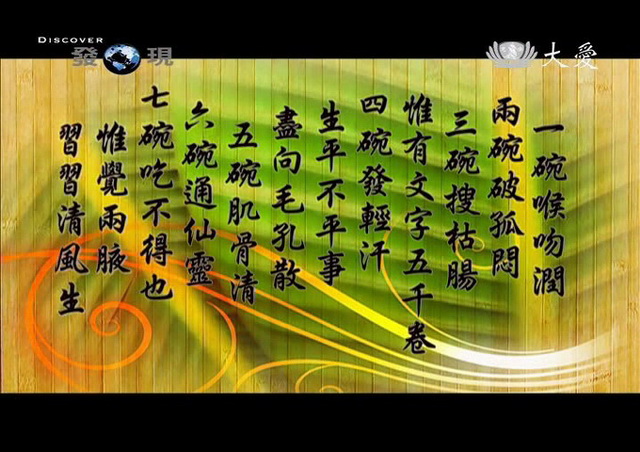 DISCOVER
發現
大愛
一碗喉吻潤
兩碗破孤悶
三碗搜枯腸
惟有文字五千卷
四碗發輕汗
生平不平事
盡向毛孔散
五碗肌骨清
六碗通仙靈
七碗吃不得也
惟覺兩腋
習習清風生